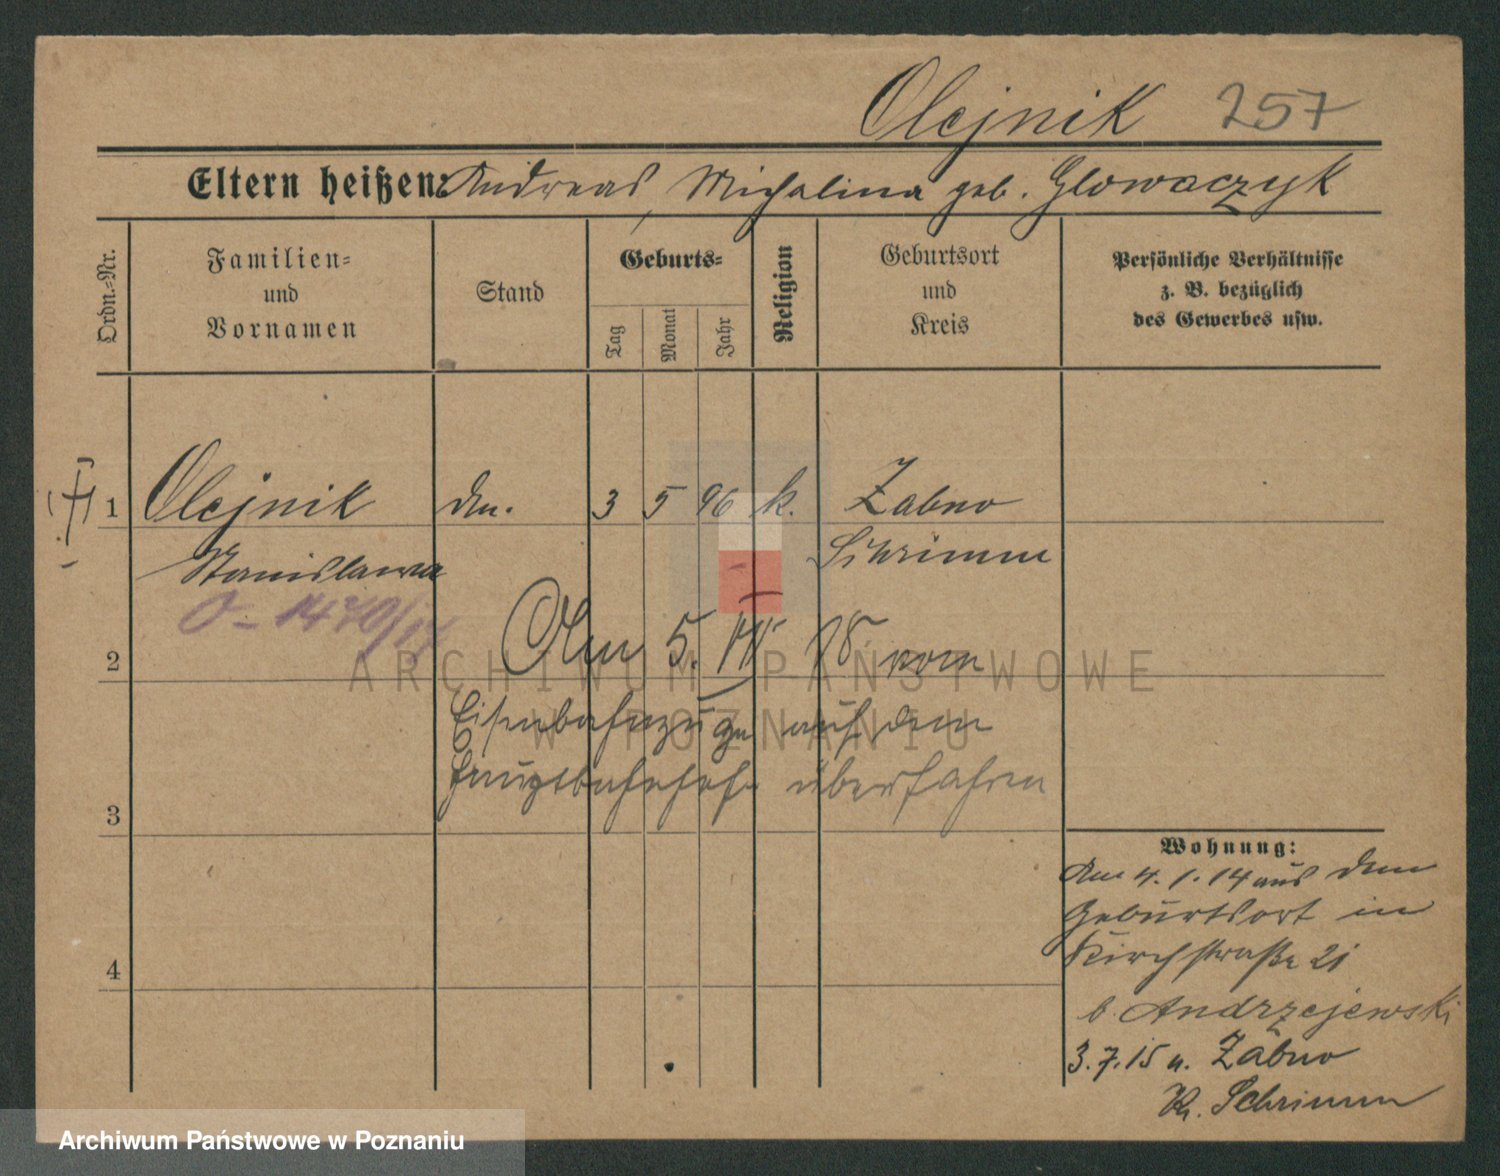 Olejnik 257
Eltern heißen: Andreas, Michalina geb. Glowaczyk
Ordn.-Nr.
Familien-
und
Vornamen
Stand
Geburts-
Tag
Monat
Jahr
Religion
Geburtsort
und
Kreis
Persönliche Verhältnisse
z. B. bezüglich
des Gewerbes usw.
1 Olejnik 3 5 96 k. Zabno
Stanislawa Schrimm
Am 5. 18 vom
2
Eisenbahnzuge auf dem
Hauptbahnhofe überfahren
3
Wohnung:
Am 4. 1. 14 aus dem
Geburtsort in
Kirchstraße 21
b. Andrzejewski
4
3. 7. 15 n. Zabno
Kr. Schrimm
ARCHIWUM PAŃSTWOWE
W POZNANIU
Archiwum Państwowe w Poznaniu